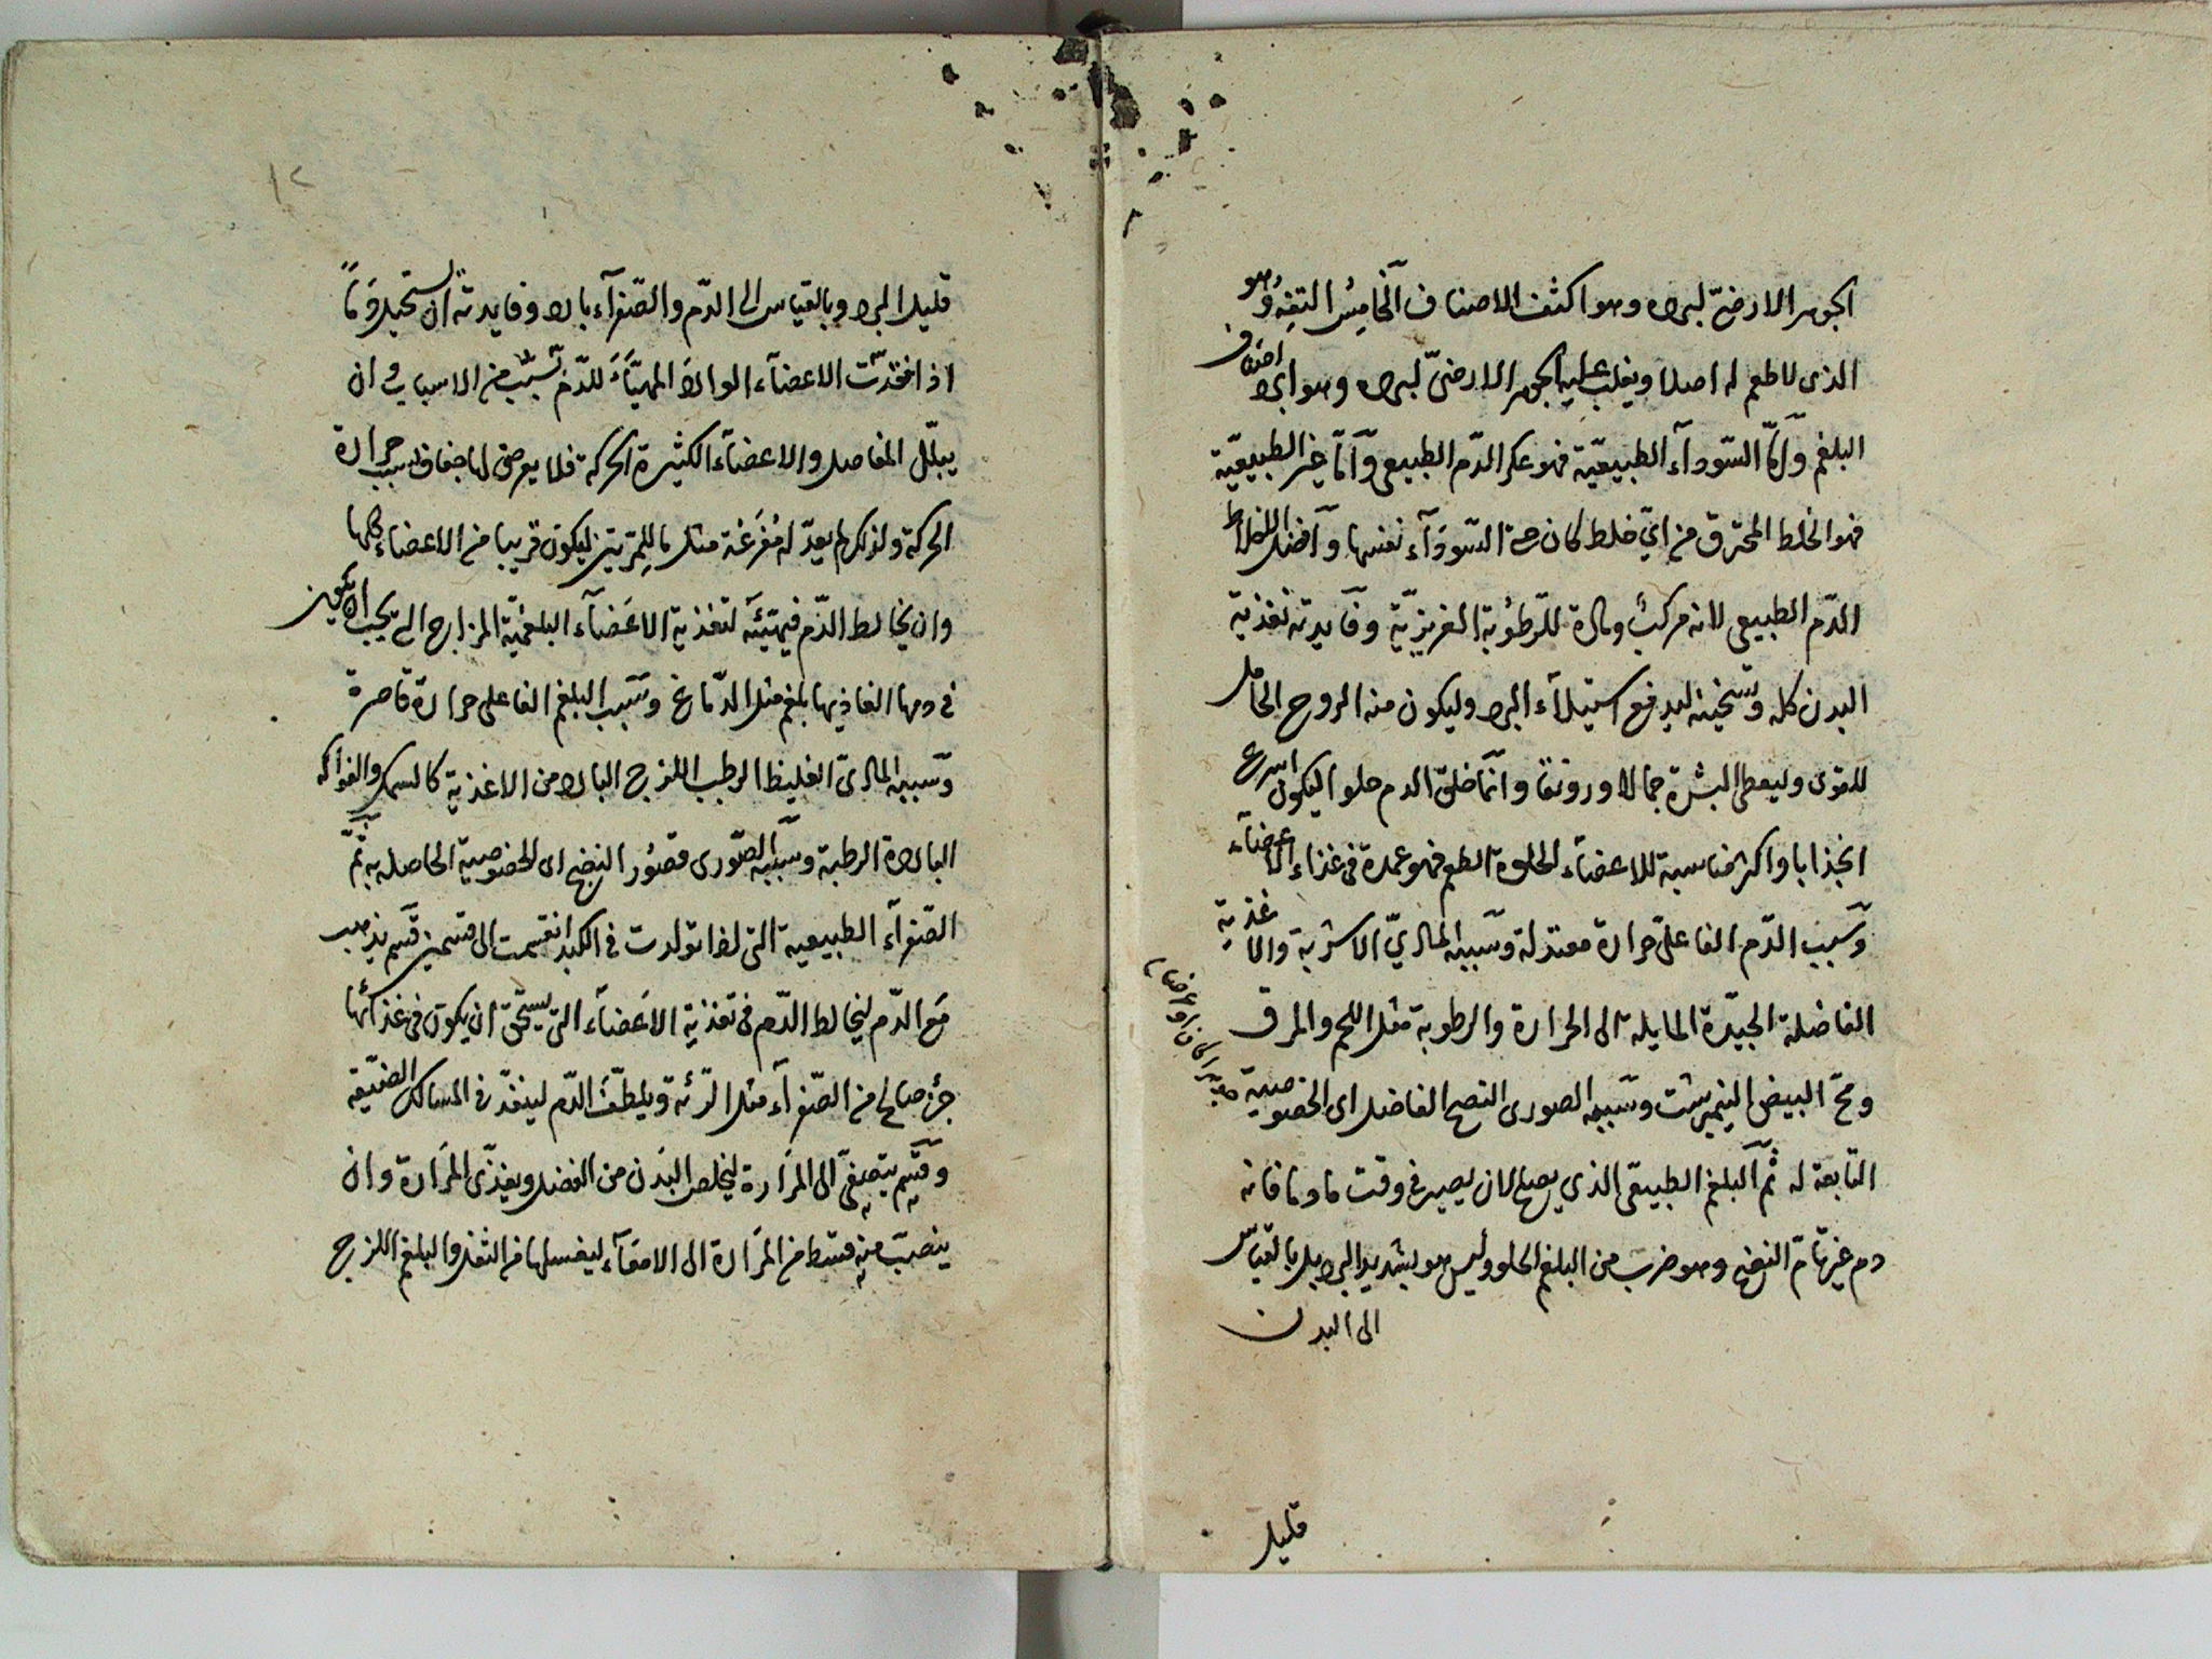 الجوهر الارضىّ لبرده وهو اكثف الاصناف الخامِسُ التفِهُ وهو
الذى لا طعم له اصلا ويغلب عليه الجوهر الارضىّ لبرده وهو ابرد اصناف
البلغم وَامّا السّودآء الطبيعيّة فهو عكر الدّم الطبيعى وَآمّا غير الطبيعيّة
فهو الخلط المحترق من اىّ خلط كان حتى السّودَآء نفسها وَآفضل الاخلاط
الدّم الطبيعى لانه مركبُ ومادة للرّطوُبة الغريزيّة وفَايدته تغذية
البدن كله وتسخينه ليدفع استيلآء البرد وليكون منه الروح الحامل
للقوى وليعطى البشرة جمالا ورونقا وانمّا خلق الدم حلوا ليكون اسرع
انجذابا واكثر مناسبة للاعضاء لحلاوة الطعم فهو عمدة فى غذاء الاعضآء
وسَبب الدّم الفاعلىّ حرارة معتدلة وسَببه المادىّ الاشربة والاغذية
الفاضلة الجيّدة المايلة الى الحرارة والرطوبة مثل اللحم والمرق
ومحّ البيض النيمبرشت وسَببه الصورى النضج الفاضل اى الخصوصية
التابعة له ثمّ البلغم الطبيعّى الذي يصلح لان يصير فى وقت ما دما فانه
دم غير تامّ النضج وهو ضربَ من البلغم الحلو وليس هو بشديد البرد بل بالقياسّ
الى البدن
قليل
١٢
قليل البرد وبالقياس الى الدّم والصّفرآء بارد وفايدته ان يستحيل دَمًا
اذا فقدت الاعضآء الوارد المهيّأ للدّم بسَبب من الاسباب وان
يبلّل المفاصل والاعضآء الكثيرة الحركة فلا يعرض لها جفاف بسبب حرارة
الحركة ولذلك لم يعدّ له مُفرَغة مثل ما للمِرّتين ليكون قريبا من الاعضاء كلها
وان يخالط الدّم فيهيّئه لتغذية الاعَضآء البلغميّة المزاج التى يجب ان يكون
فى دمها الغاذيها بلغم مثل الدّماغ وسَبب البلغم الفاعلى حرارة قاصرة
وسَببه المادىّ الغليظ الرطب اللزج البارد من الاغذية كالسمك والفواكه
الباردة الرطبة وسَببه الصّورى قصوُر النضج اى الخصوصية الحاصله به ثمّ
الصّفرآء الطبيعية التى اذا تولدت فى الكبد انقسمت الى قسمين قسَم يذهب
مَع الدّم ليخالط الدّم فى تغذية الاَعضآء التى يستحّق ان يكون فى غذائها
جزُء صالح من الصّفرآء مثل الرّئة ويلطّف الدّم لينفذ فى المسالك الضيّقة
وقَسَم يتصفىّ الى المرَارة ليخلص البَدن من الفضل ويغذّى المرَارة وان
ينصبّ منه قسط من المرَارة الى الامعَآء ليغسلها من الثفل والبلغم اللزج